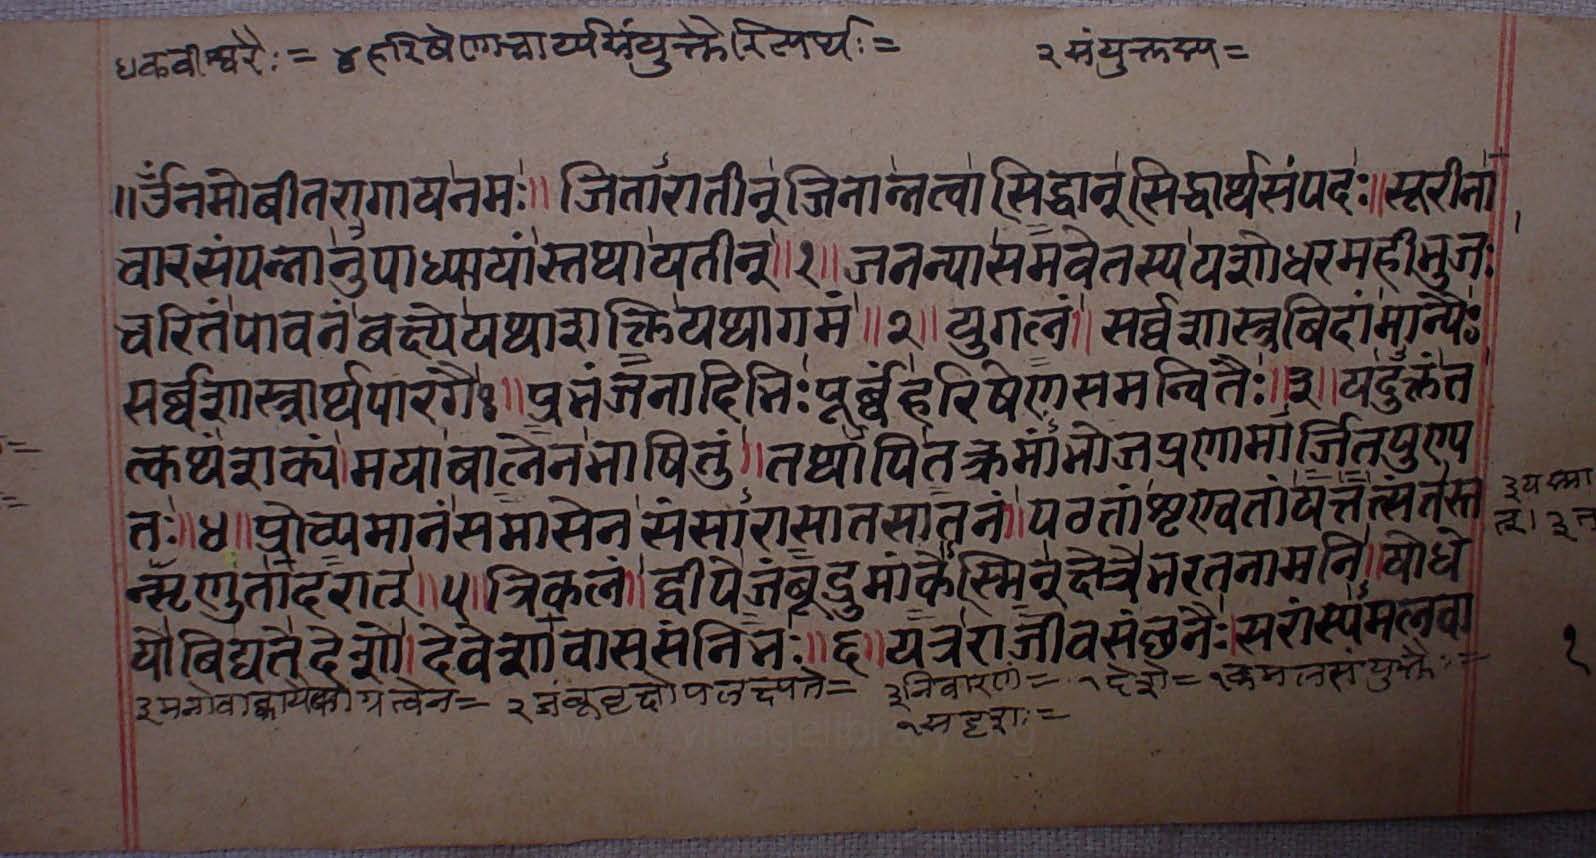 धकवीश्वरैः = ४ हरिषेणाचार्यसंयुक्तैरित्यर्थः = २ संयुक्तस्य =
॥ ॐ नमो बीतरागाय नमः ॥ जितारातीन् जिनान्नत्वा सिद्धान् सिद्धार्थसंपदः ॥ सूरीना
चारसंपन्नानुपाध्यायांस्तथा यतीन् ॥ १ ॥ जनन्या समवेतस्य यशोधरमहीभुजः
चरितं पावनं बक्ष्ये यथाशक्ति यथागमं ॥ २ ॥ युगलं ॥ सर्व्वशास्त्रबिदां मान्यैः
सर्ब्बशास्त्रार्थपारगैः ॥ प्रभंजनादिभिः पूर्ब्बं हरिषेणसमन्वितैः ॥ ३ ॥ यदुक्तं त
त्कथं शक्यं मया बालेन भाषितुं ॥ तथापि तत्क्रमांभोजप्रणामार्जितपुण्य
तः ॥ ४ ॥ प्रोच्यमानं समासेन संसारासातसातनं ॥ पठतां शृण्वतां यत्तत्संतस्त
च्छृणुतादरात् ॥ ५ ॥ त्रिकलं ॥ द्वीपे जंबूद्रुमांकेस्मिन् क्षेत्रे भरतनामनि ॥ योधे
यो बिद्यते देशो देवेशावाससंनिभः ॥ ६ ॥ यत्र राजीवसंछन्नैः सरांस्यमलवा
३ मनोवाक्कायैकाग्रत्वेन = २ जंबूवृक्षोपलक्ष्यते = ३ निवारणं = १ देशे = १ कमलसंयुक्तैः =
१ सदृशः =
३ यस्मा
त्
१
www.villagelibrary.org